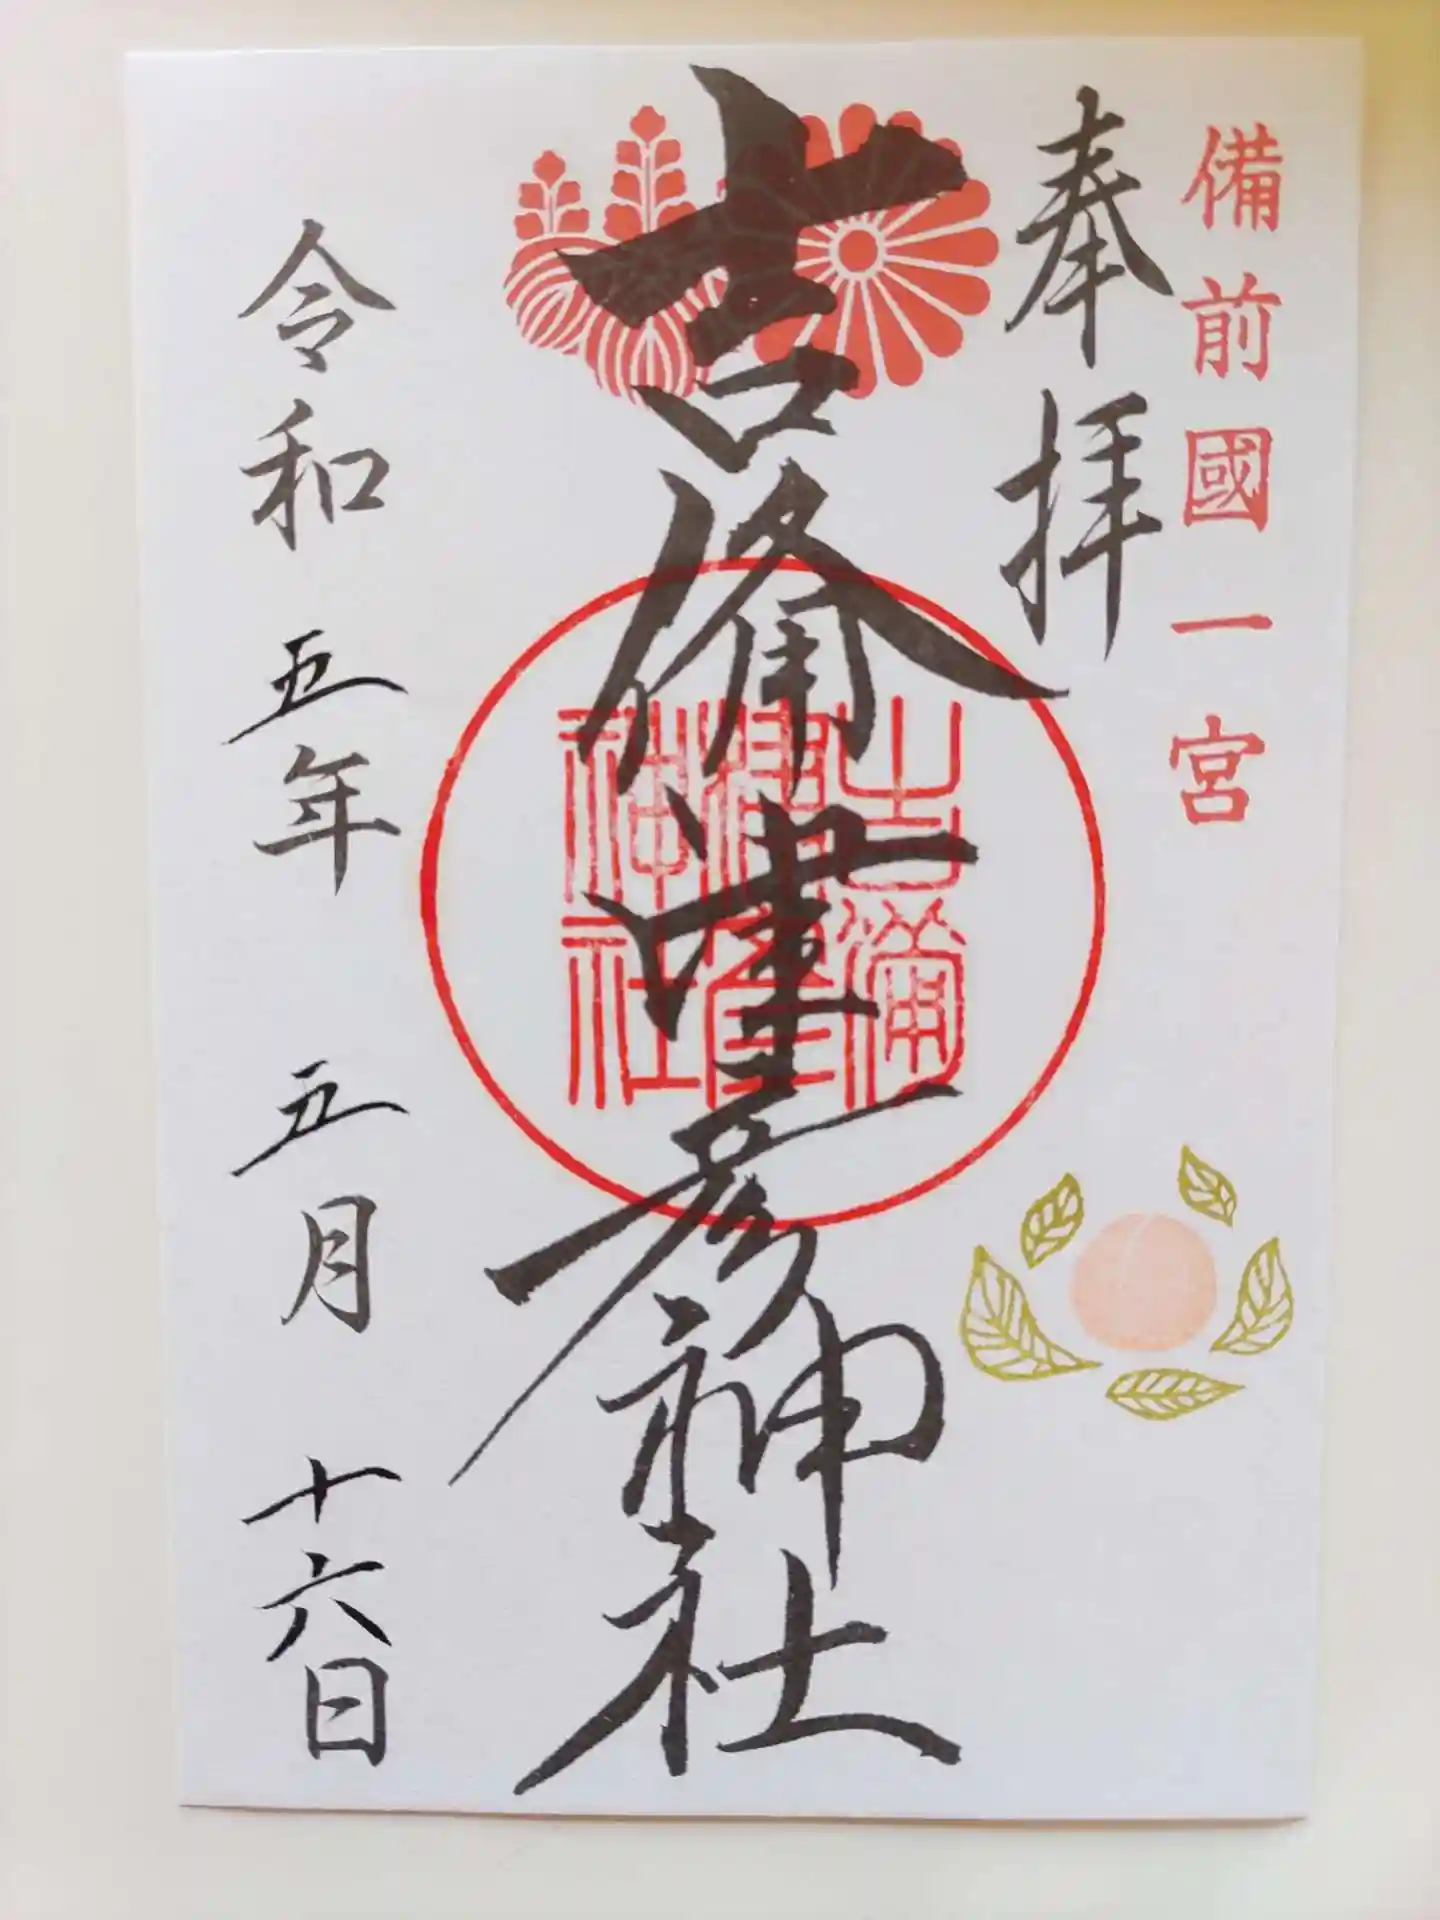 備前國一宮
奉拝
吉備津彦神社
吉備
津彦
神社
令和五年 五月 十六日